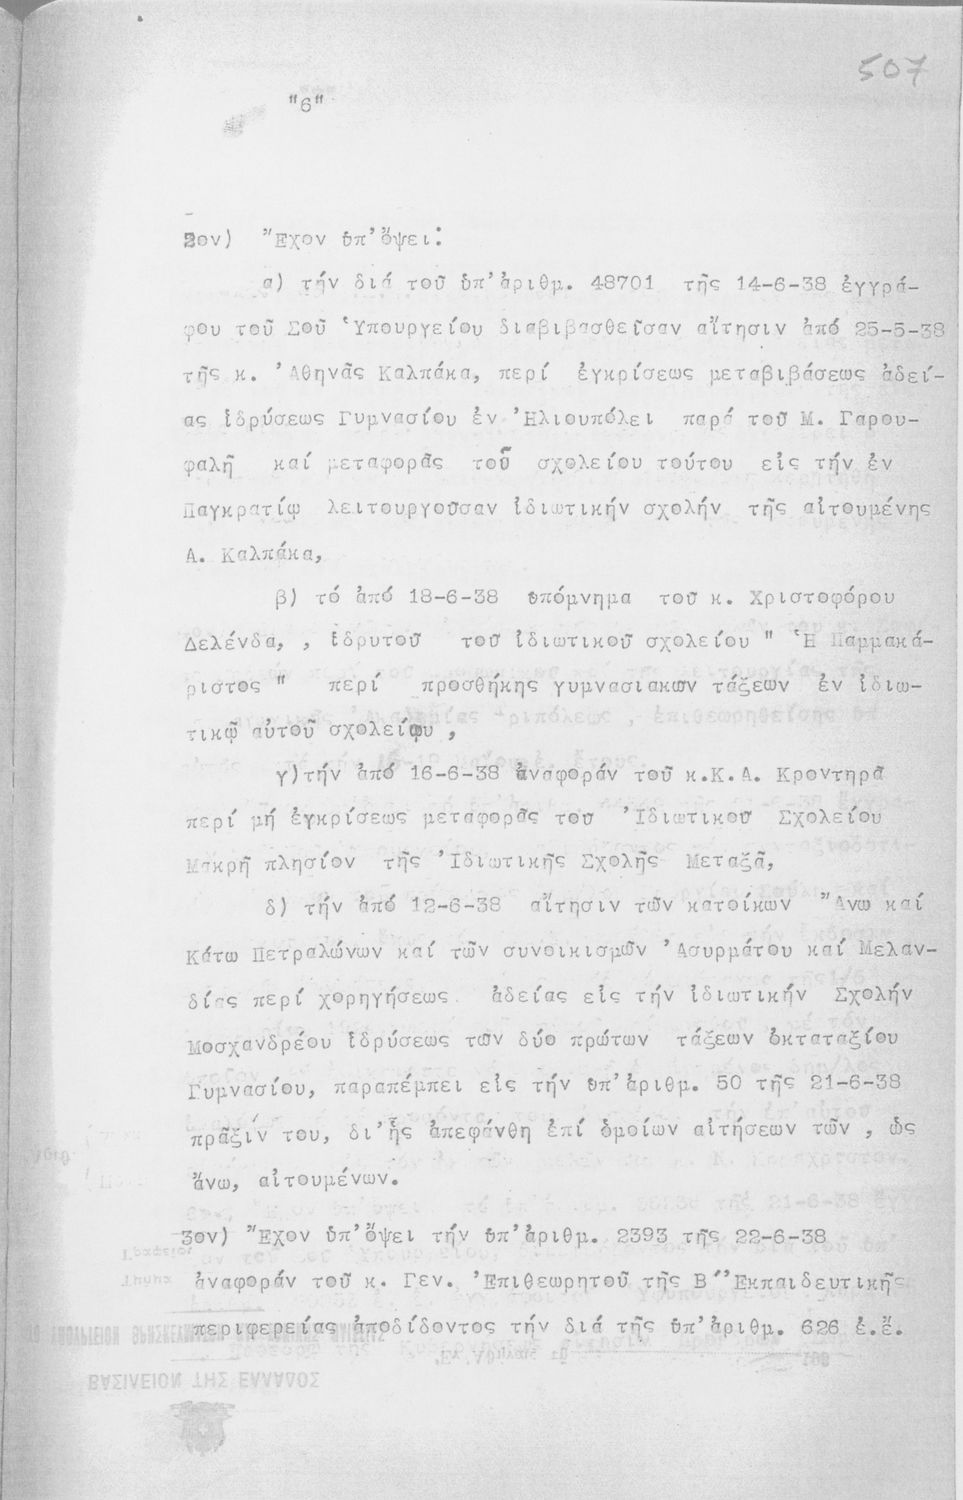 507
"6"
2ον) Ἔχον ὑπ' ὄψει:
α) τήν διά τοῦ ὑπ' ἀριθμ. 48701 τῆς 14-6-38 ἐγγρά-
φου τοῦ Σοῦ Ὑπουργείου διαβιβασθεῖσαν αἴτησιν ἀπό 25-5-38
τῆς κ. Ἀθηνᾶς Καλπάκα, περί ἐγκρίσεως μεταβιβάσεως ἀδεί-
ας ἱδρύσεως Γυμνασίου ἐν Ἡλιουπόλει παρά τοῦ Μ. Γαρου-
φαλῆ καί μεταφορᾶς τοῦ σχολείου τούτου εἰς τήν ἐν
Παγκρατίῳ λειτουργοῦσαν ἰδιωτικήν σχολήν τῆς αἰτουμένης
Α. Καλπάκα,
β) τό ἀπό 18-6-38 ὑπόμνημα τοῦ κ. Χριστοφόρου
Δελένδα, , ἱδρυτοῦ τοῦ ἰδιωτικοῦ σχολείου " Ἡ Παμμακά-
ριστος " περί προσθήκης γυμνασιακῶν τάξεων ἐν ἰδιω-
τικῷ αὐτοῦ σχολείῳ ,
γ)τήν ἀπό 16-6-38 ἀναφοράν τοῦ κ.Κ.Α. Κροντηρᾶ
περί μή ἐγκρίσεως μεταφορᾶς τοῦ Ἰδιωτικοῦ Σχολείου
Μακρῆ πλησίον τῆς Ἰδιωτικῆς Σχολῆς Μεταξᾶ,
δ) τήν ἀπό 12-6-38 αἴτησιν τῶν κατοίκων Ἄνω καί
Κάτω Πετραλώνων καί τῶν συνοικισμῶν Ἀσυρμάτου καί Μελαν-
δίας περί χορηγήσεως ἀδείας εἰς τήν ἰδιωτικήν Σχολήν
Μοσχανδρέου ἱδρύσεως τῶν δύο πρώτων τάξεων ὀκταταξίου
Γυμνασίου, παραπέμπει εἰς τήν ὑπ' ἀριθμ. 50 τῆς 21-6-38
πρᾶξιν του, δι' ἧς ἀπεφάνθη ἐπί ὁμοίων αἰτήσεων τῶν , ὡς
ἄνω, αἰτουμένων.
3ον) Ἔχον ὑπ' ὄψει τήν ὑπ' ἀριθμ. 2393 τῆς 22-6-38
ἀναφοράν τοῦ κ. Γεν. Ἐπιθεωρητοῦ τῆς Β' Ἐκπαιδευτικῆς
περιφερείας ἀποδίδοντος τήν διά τῆς ὑπ' ἀριθμ. 626 ἐ.ἔ.
ΒΑΣΙΛΕΙΟΝ ΤΗΣ ΕΛΛΑΔΟΣ